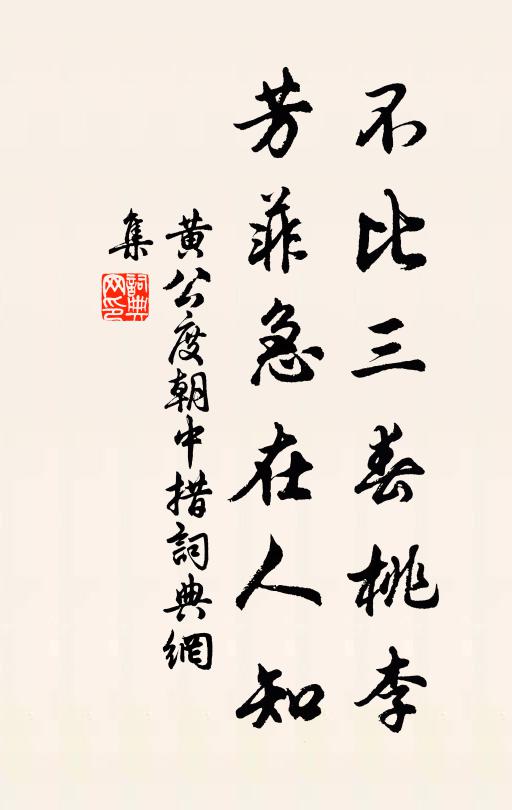 不比三春桃李
芳菲急在人知
黄公度朝中措詞典網
集
詞典网印